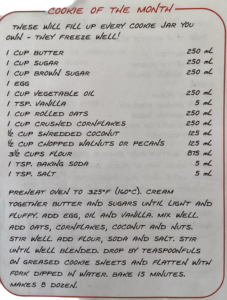 COOKIE OF THE MONTH
THESE WILL FILL UP EVERY COOKIE JAR YOU
OWN - THEY FREEZE WELL!
1 CUP BUTTER 250 mL
1 CUP SUGAR 250 mL
1 CUP BROWN SUGAR 250 mL
1 EGG
1 CUP VEGETABLE OIL 250 mL
1 TSP. VANILLA 5 mL
1 CUP ROLLED OATS 250 mL
1 CUP CRUSHED CORNFLAKES 250 mL
½ CUP SHREDDED COCONUT 125 mL
½ CUP CHOPPED WALNUTS OR PECANS 125 mL
3½ CUPS FLOUR 875 mL
1 TSP. BAKING SODA 5 mL
1 TSP. SALT 5 mL
PREHEAT OVEN TO 325°F (160°C). CREAM
TOGETHER BUTTER AND SUGARS UNTIL LIGHT AND
FLUFFY. ADD EGG, OIL AND VANILLA. MIX WELL.
ADD OATS, CORNFLAKES, COCONUT AND NUTS.
STIR WELL. ADD FLOUR, SODA AND SALT. STIR
UNTIL WELL BLENDED. DROP BY TEASPOONFULS
ON GREASED COOKIE SHEETS AND FLATTEN WITH
FORK DIPPED IN WATER. BAKE 15 MINUTES.
MAKES 8 DOZEN.